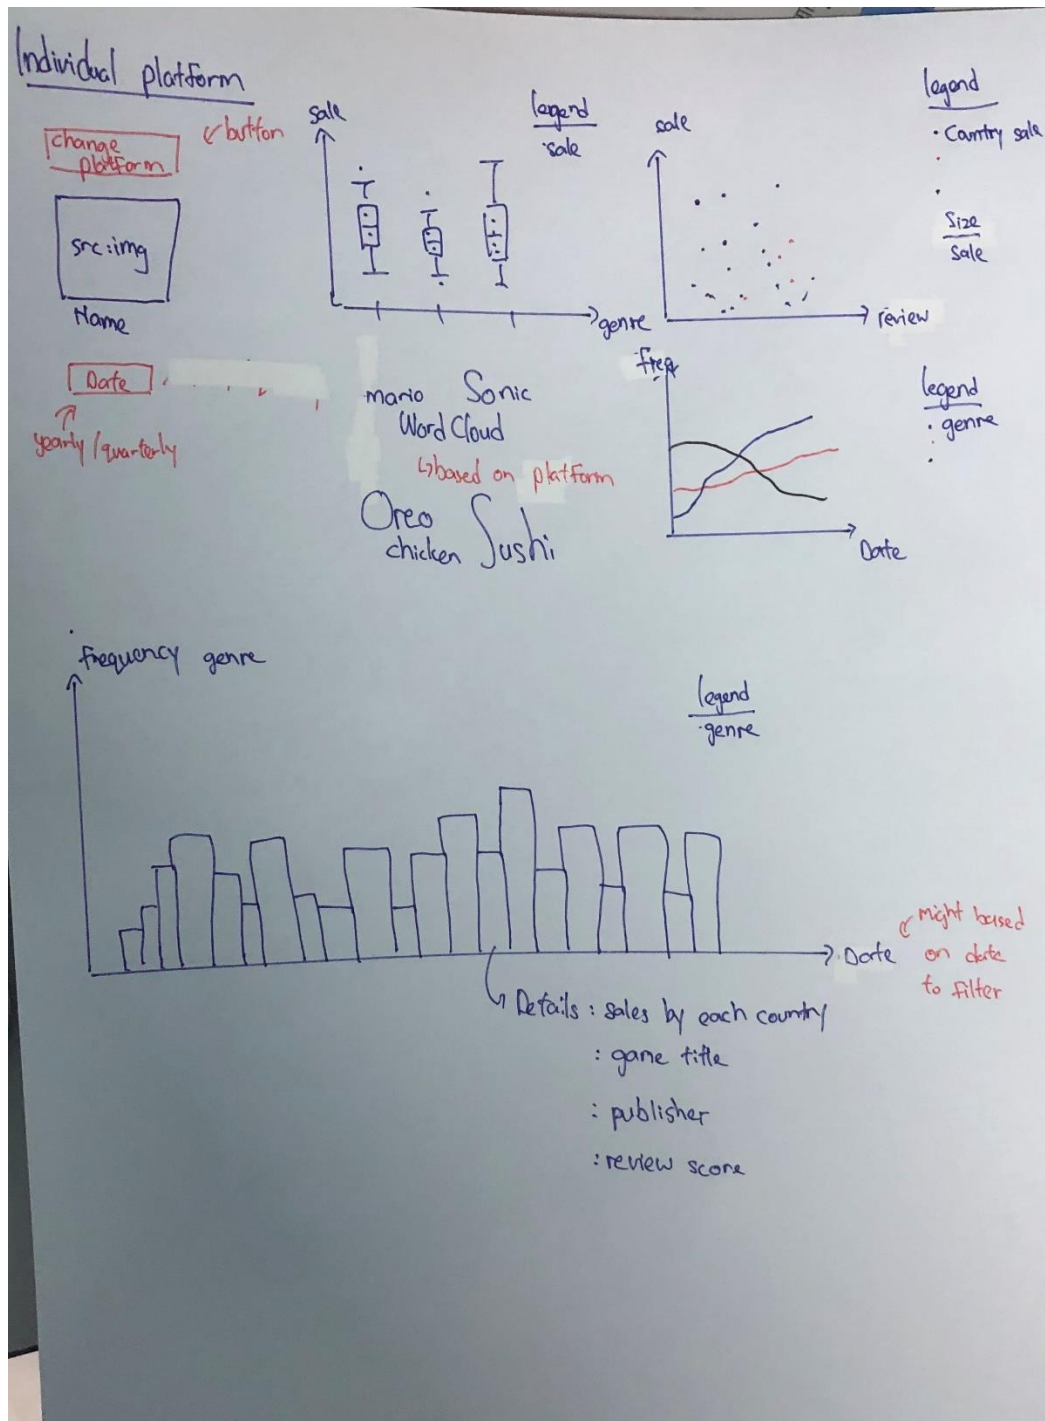 Individual platform
change
platform
button
src:img
Name
Date
yearly/quarterly
sale
legend
·sale
genre
sale
legend
· Country sale
Size
sale
review
mario Sonic
Word Cloud
↳based on platform
Oreo
chicken Sushi
freq
legend
· genre
Date
frequency genre
legend
·genre
Date
might based
on date
to filter
Details : sales by each country
: game title
: publisher
: review score